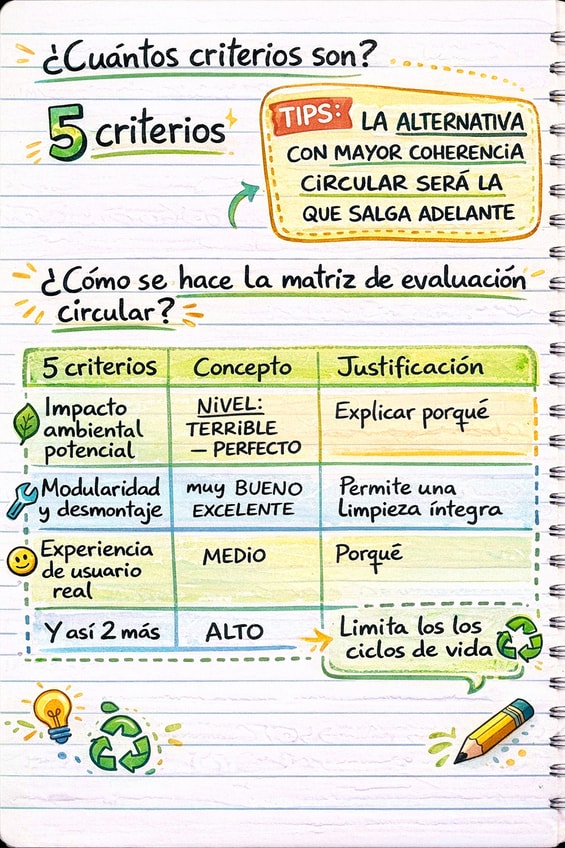 ¿Cuántos criterios son?
5 criterios
TIPS: LA ALTERNATIVA
CON MAYOR COHERENCIA
CIRCULAR SERÁ LA
QUE SALGA ADELANTE
¿Cómo se hace la matriz de evaluación
circular?
5 criterios
Concepto
Justificación
Impacto
ambiental
potencial
NIVEL:
TERRIBLE
— PERFECTO
Explicar porqué
Modularidad
y desmontaje
muy BUENO
EXCELENTE
Permite una
Limpieza íntegra
Experiencia
de usuario
real
MEDIO
Porqué
Y así 2 más
ALTO
Limita los los
ciclos de vida